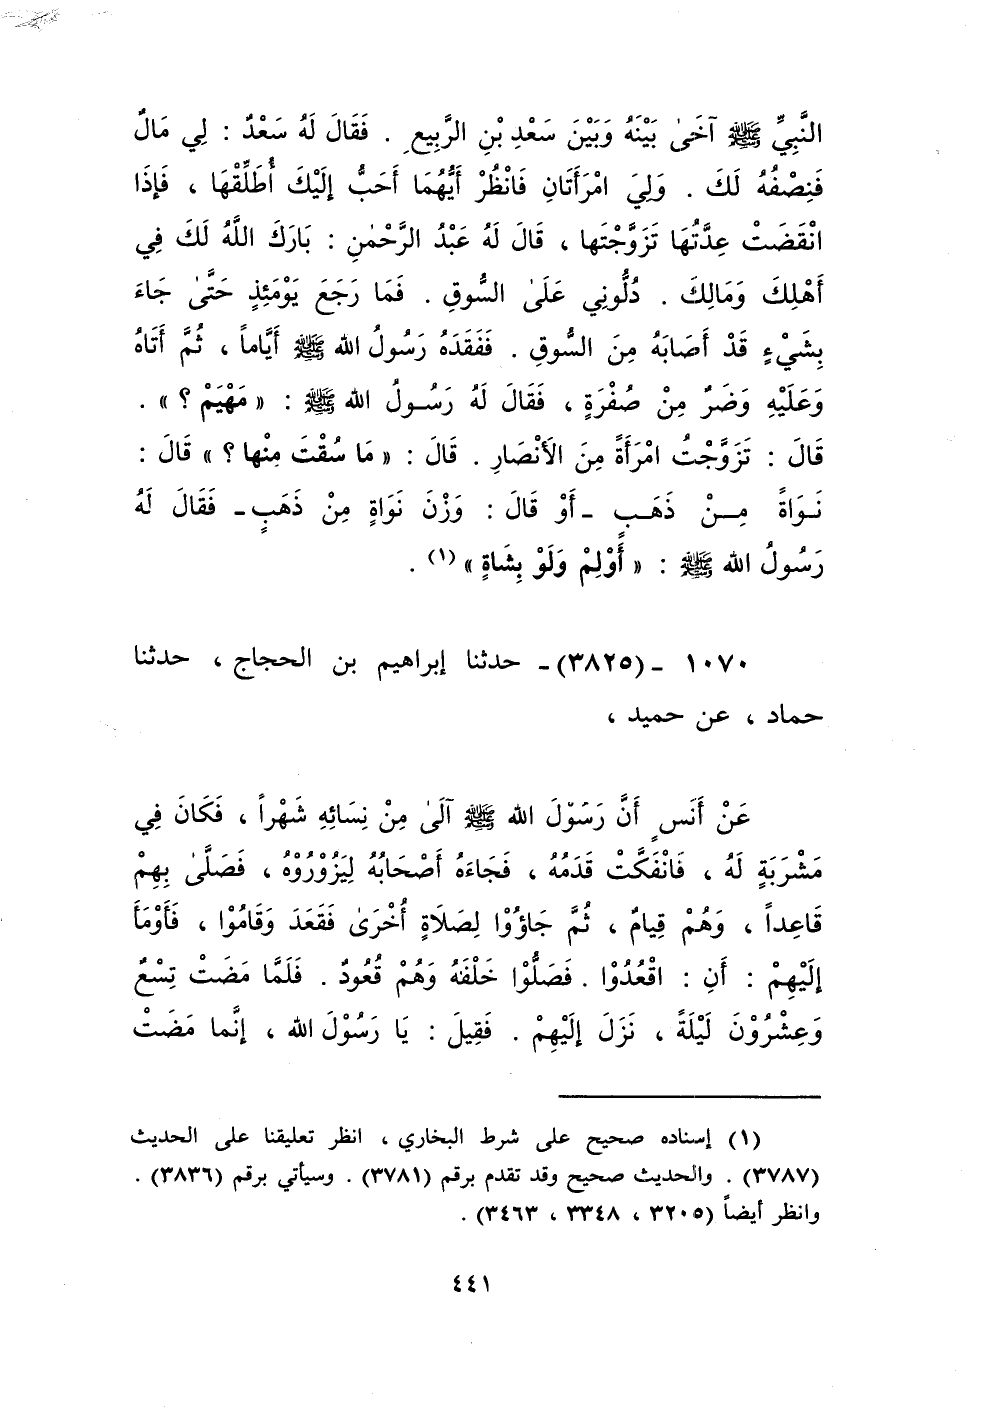 النَّبِيِّ ﷺ آخَىٰ بَيْنَهُ وَبَيْنَ سَعْدِ بْنِ الرَّبِيعِ . فَقَالَ لَهُ سَعْدٌ : لِي مَالٌ
فَنِصْفُهُ لَكَ . وَلِيَ امْرَأَتَانِ فَانْظُرْ أَيُّهُمَا أَحَبُّ إِلَيْكَ أُطَلِّقْهَا ، فَإِذَا
انْقَضَتْ عِدَّتُهَا تَزَوَّجْتَها ، قَالَ لَهُ عَبْدُ الرَّحْمٰنِ : بَارَكَ اللَّهُ لَكَ فِي
أَهْلِكَ وَمَالِكَ . دُلُّونِي عَلَىٰ السُّوقِ . فَمَا رَجَعَ يَوْمَئِذٍ حَتَّىٰ جَاءَ
بِشَيْءٍ قَدْ أَصَابَهُ مِنَ السُّوقِ . فَفَقَدَهُ رَسُولُ الله ﷺ أَيَّاماً ، ثُمَّ أَتَاهُ
وَعَلَيْهِ وَضَرٌ مِنْ صُفْرَةٍ ، فَقَالَ لَهُ رَسُولُ الله ﷺ : « مَهْيَمْ ؟ » .
قَالَ : تَزَوَّجْتُ امْرَأَةً مِنَ الأَنْصَارِ . قَالَ : « مَا سُقْتَ مِنْها ؟ » قَالَ :
نَوَاةً مِنْ ذَهَبٍ - أَوْ قَالَ : وَزْنَ نَوَاةٍ مِنْ ذَهَبٍ - فَقَالَ لَهُ
رَسُولُ الله ﷺ : « أَوْلِمْ وَلَوْ بِشَاةٍ » (١) .
١٠٧٠ - (٣٨٢٥) - حدثنا إبراهيم بن الحجاج ، حدثنا
حماد ، عن حميد ،
عَنْ أَنَسٍ أَنَّ رَسُوْلَ الله ﷺ آلَىٰ مِنْ نِسَائِهِ شَهْراً ، فَكَانَ فِي
مَشْرَبَةٍ لَهُ ، فَانْفَكَّتْ قَدَمُهُ ، فَجَاءَهُ أَصْحَابُهُ لِيَزُوْرُوْهُ ، فَصَلَّىٰ بِهِمْ
قَاعِداً ، وَهُمْ قِيامٌ ، ثُمَّ جَاؤُوْا لِصَلَاةٍ أُخْرَىٰ فَقَعَدَ وَقَامُوْا ، فَأَوْمَأَ
إِلَيْهِمْ : أَنِ : اقْعُدُوْا . فَصَلُّوْا خَلْفَهُ وَهُمْ قُعُودٌ . فَلَمَّا مَضَتْ تِسْعٌ
وَعِشْرُوْنَ لَيْلَةً ، نَزَلَ إِلَيْهِمْ . فَقِيلَ : يَا رَسُوْلَ الله ، إِنَّما مَضَتْ
(١) إسناده صحيح على شرط البخاري ، انظر تعليقنا على الحديث
(٣٧٨٧) . والحديث صحيح وقد تقدم برقم (٣٧٨١) . وسيأتي برقم (٣٨٣٦) .
وانظر أيضاً (٣٢٠٥ ، ٣٣٤٨ ، ٣٤٦٣) .
٤٤١